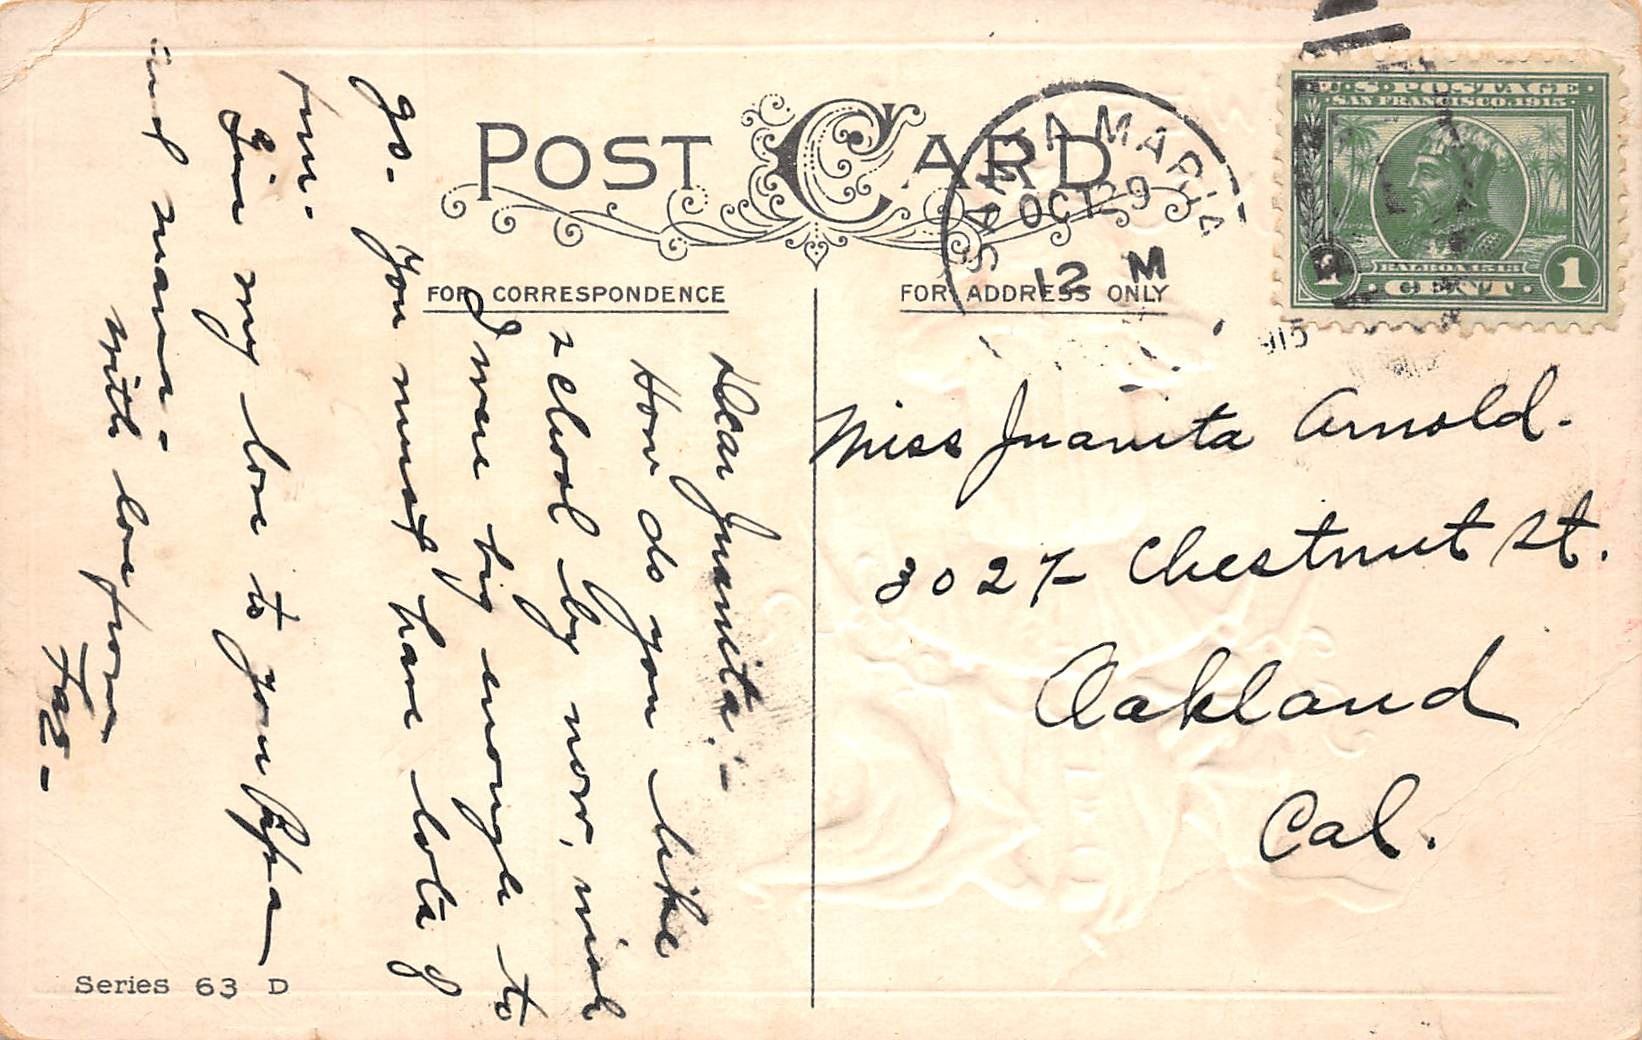 POST CARD
FOR CORRESPONDENCE
FOR ADDRESS ONLY
SANTA MARIA
OCT 29
12 M
1915
U.S. POSTAGE
SAN FRANCISCO, 1915
BALBOA 1513
1 CENT 1
Miss Juanita Arnold.
3027 Chestnut St.
Oakland
Cal.
Dear Juanita:-
How do you like
school by now, wish
I were big enough to
go. You must have lots of
fun.-
Give my love to your Papa
and mama.-
with love from
Series 63 D